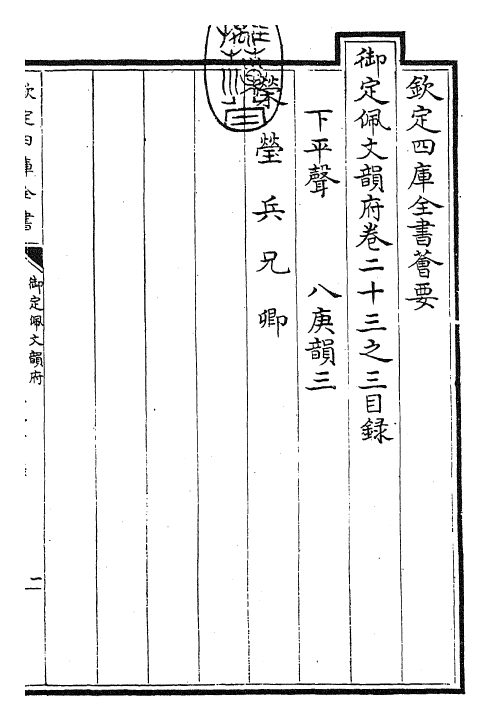 欽定四庫全書薈要
御定佩文韻府卷二十三之三目録
下平聲　八庚韻三
榮瑩兵兄卿
欽定四庫全書
御定佩文韻府